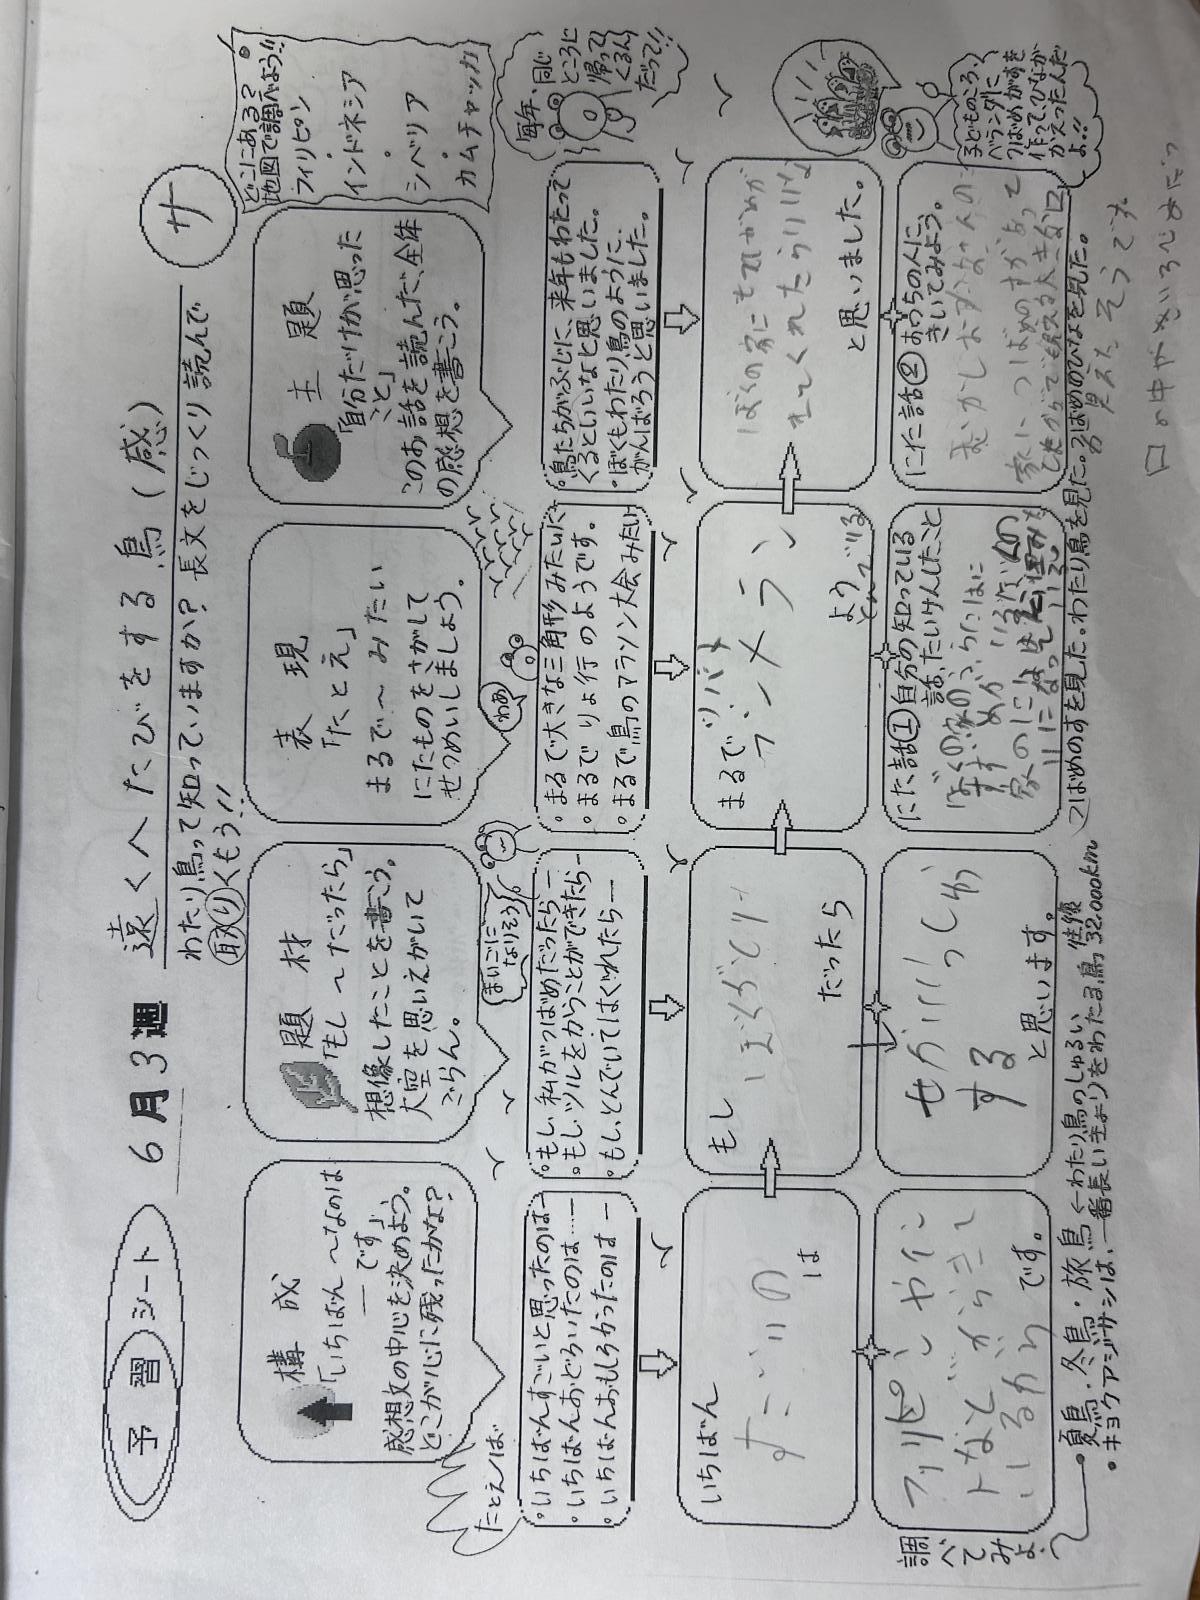 予習シート
6月3週
遠くへたびをする鳥(感)
サ
わたり鳥って知っていますか?長文をじっくり読んで
取りくもう!!
どこにある?
地図で調べよう!!
フィリピン
インドネシア
シベリア
カムチャッカ
構成
「いちばん~なのは
―です」
感想文の中心を決めよう。
どこが心に残ったかな?
題材
「もし~だったら」
想像したことを書こう。
大空を思いえがいて
ごらん。
表現
「たとえ」
まるで~みたい
にたものをさがして
せつめいしましょう。
主題
「自分だけが思った
こと」
このお話を読んだ、全体
の感想を書こう。
たとえば
・いちばんすごいと思ったのは―
・いちばんおどろいたのは……
・いちばんおもしろかったのは―
まいごに
なりそう
・もし、私がつばめだったら―
・もし、ツルをかうことができたら―
・もし、とんでいてはぐれたら―
わあ
・まるで大きな三角形みたいだ
・まるでりょ行のようです。
・まるで鳥のマラソン大会みたい
毎年、同じ
ところに
帰って
くるん
だって!!
・鳥たちがぶじに、来年もわたって
くるといいなと思いました。
・ぼくもわたり鳥のように、
がんばろうと思いました。
いちばん
すごいの
は
もし
ぼくがとり
だったら
まるで
ように
とんでいる
ぼくの家にもつばめが
きてくれたらいいな
と思いました。
調べてみよ
フィリピンやイン
です。
せかいいっしゅう
する
と思います。
にた話①自分の知っている
話、たいけんしたこと
ぼくの家の
にた話②おうちの人に、
きいてみよう。
家につばめのすがあって
見えたそうです
口の中がきいろくめだつ
子どものころ、
ベランダに
つばめがすを
作ってひなが
かえったんだ
よ!!
・夏鳥・冬鳥・旅鳥←わたり鳥のしゅるい
・キョクアジサシは、一番長いきょりをわたる鳥 往復32,000km
つばめのすを見た。わたり鳥を見た。つばめのひなを見た。